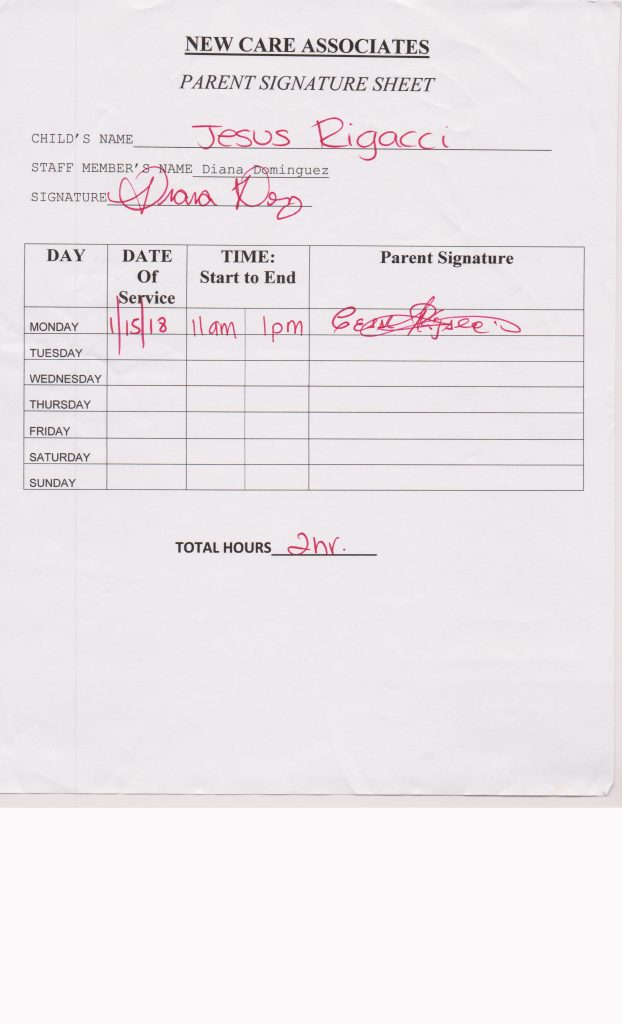 NEW CARE ASSOCIATES
PARENT SIGNATURE SHEET
CHILD'S NAME Jesus Rigacci
STAFF MEMBER'S NAME Diana Dominguez
SIGNATURE Diana
DAY DATE Of Service TIME: Start to End Parent Signature
MONDAY 1/15/18 11am 1pm
TUESDAY
WEDNESDAY
THURSDAY
FRIDAY
SATURDAY
SUNDAY
TOTAL HOURS 2hr.